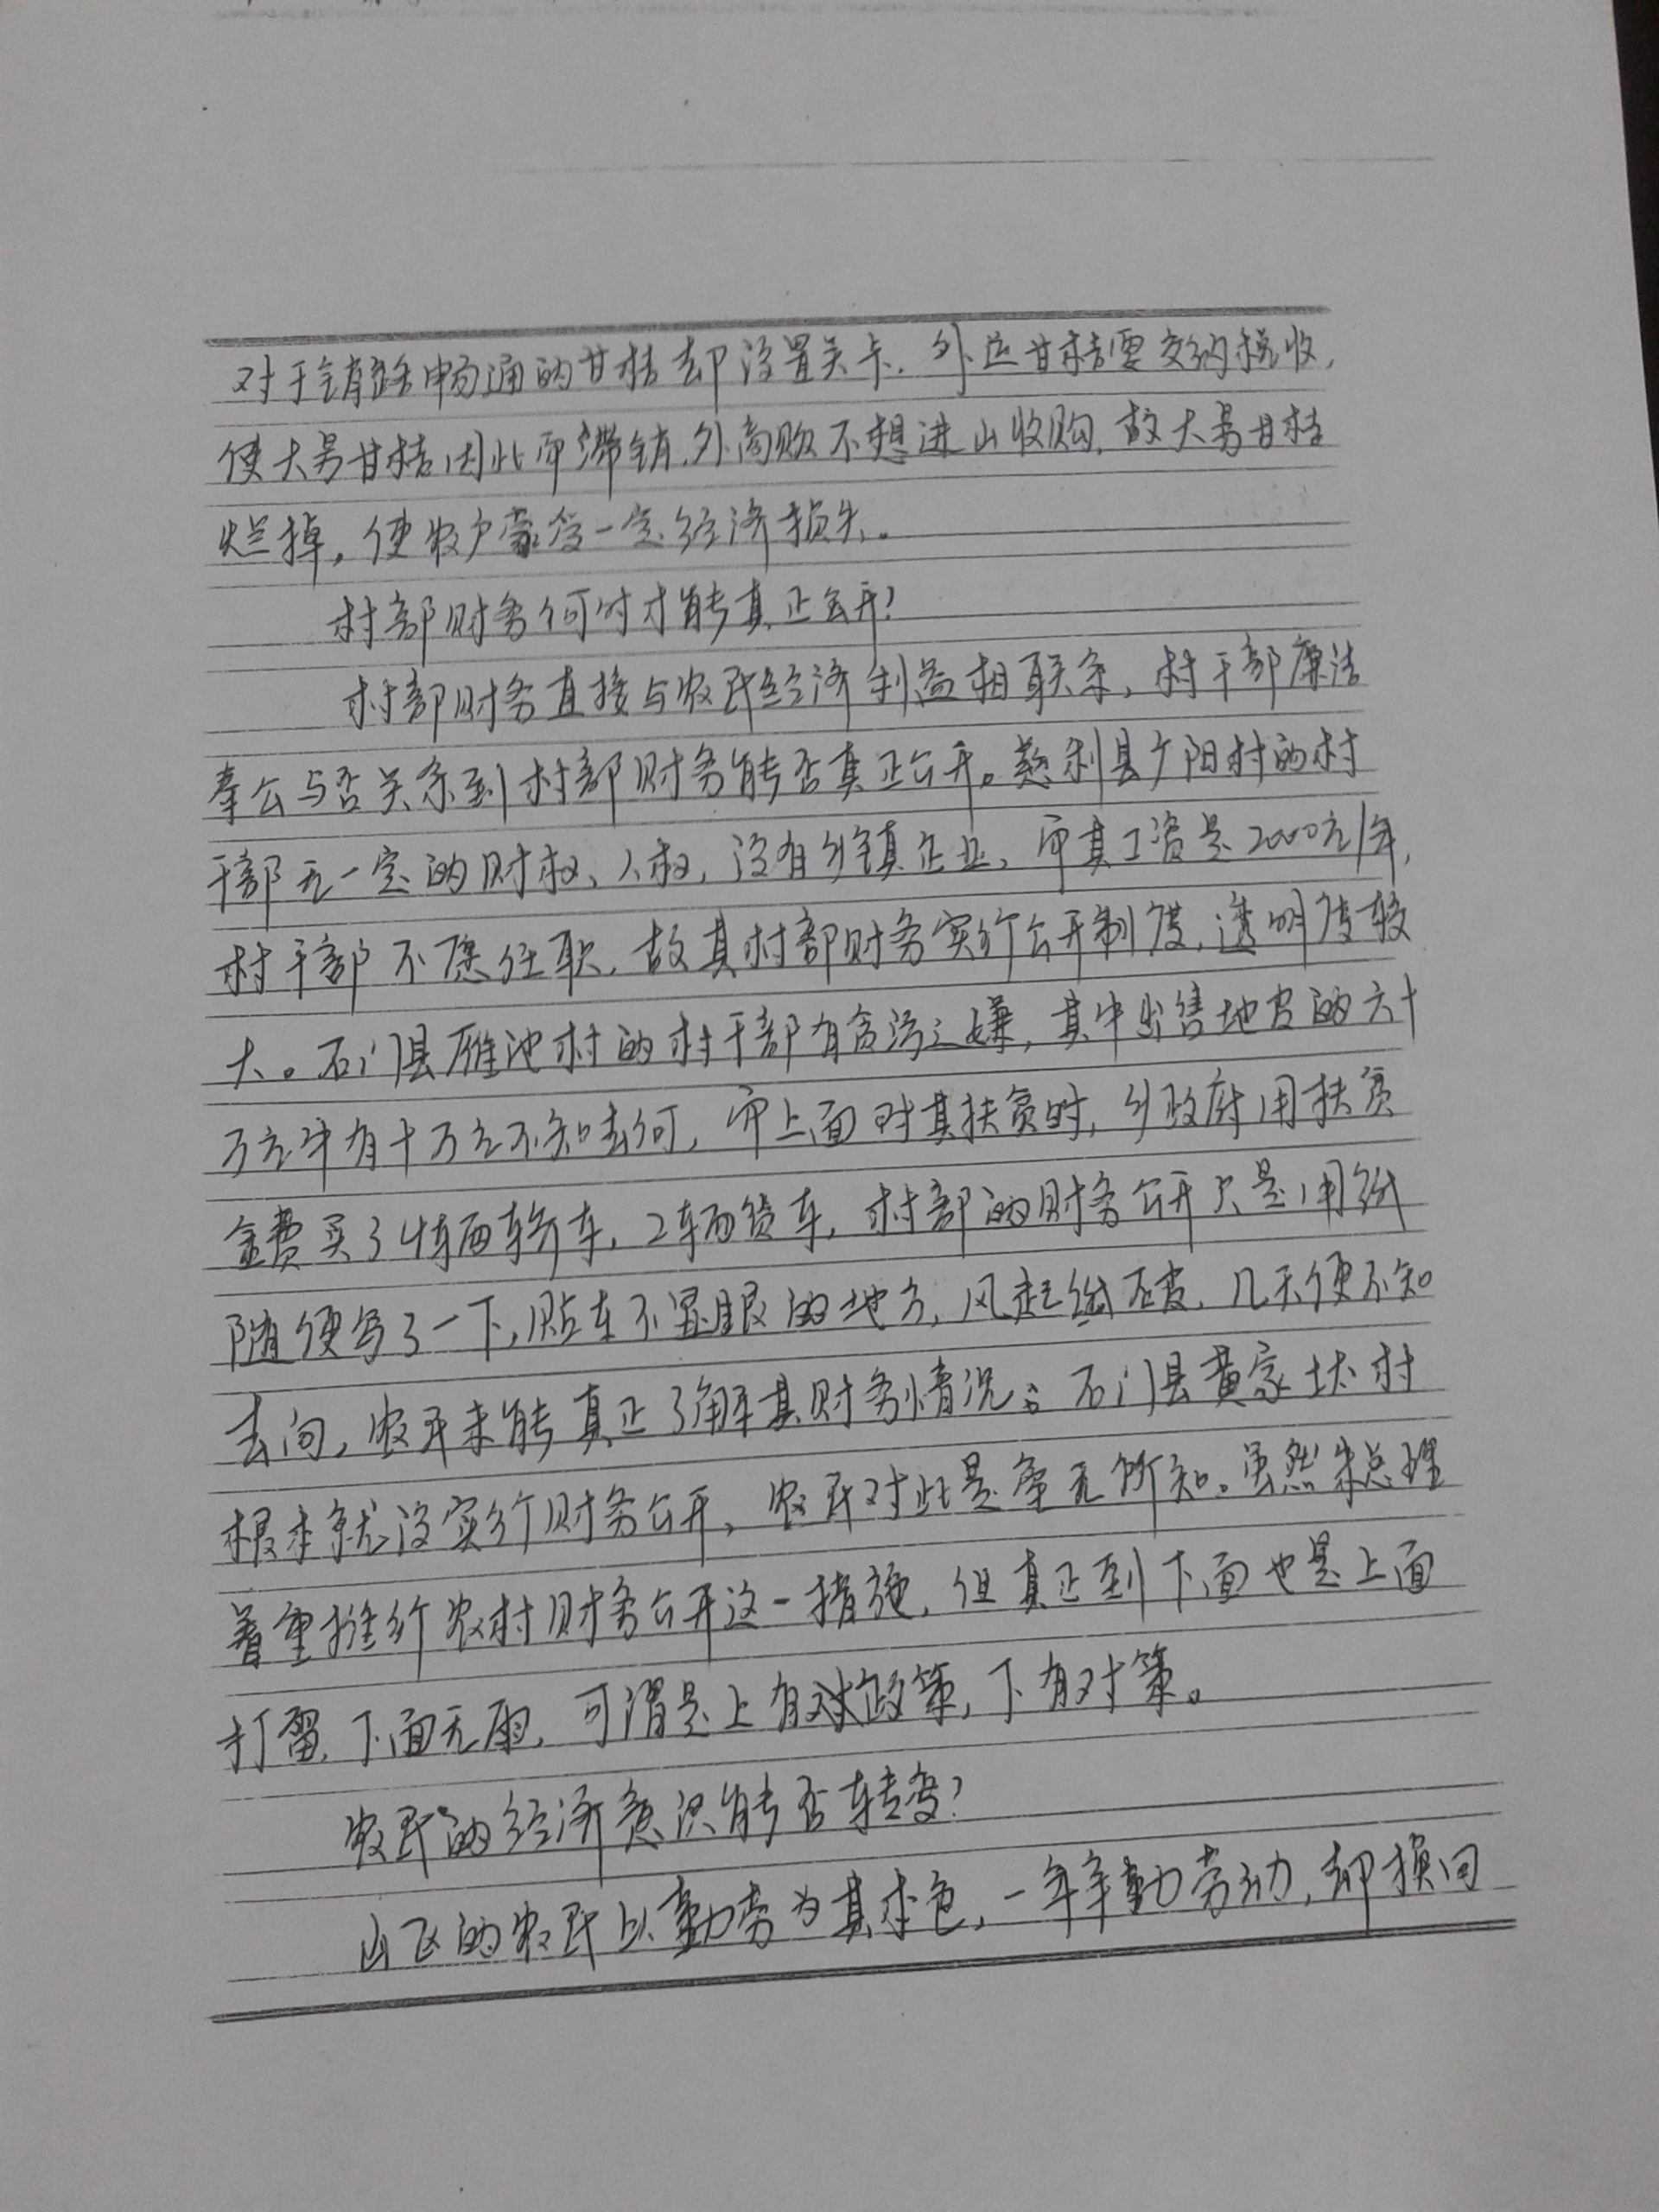 对于销路畅通的甘桔却设置关卡，外运甘桔需交纳税收，
使大量甘桔因此而滞销，外商贩不想进山收购，故大量甘桔
烂掉，使农户蒙受一定经济损失。
村部财务何时才能真正公开？
村部财务直接与农民经济利益相联系，村干部廉洁
奉公与否关系到村部财务能否真正公开。慈利县夕阳村的村
干部无一定的财权、人权，没有乡镇企业，而其工资是2000元/年，
村干部不愿任职，故其村部财务实行公开制度，透明度较
大。石门县雁池村的村干部有贪污之嫌，其中出售地皮的六十
万元中有十万元不知去向，而上面对其扶贫时，乡政府用扶贫
金费买了4辆轿车，2辆货车，村部的财务公开只是用纸
随便写了一下，贴在不显眼的地方，风起纸破，几天便不知
去向，农民未能真正了解其财务情况；石门县黄家 村
根本就没实行财务公开，农民对此是毫无所知。虽然朱总理
着重推行农村财务公开这一措施，但真正到下面也是上面
打雷，下面无雨，可谓是上有政策，下有对策。
农民的经济意识能否转变？
山区的农民以勤劳为其本色，一年辛勤劳动，却换回